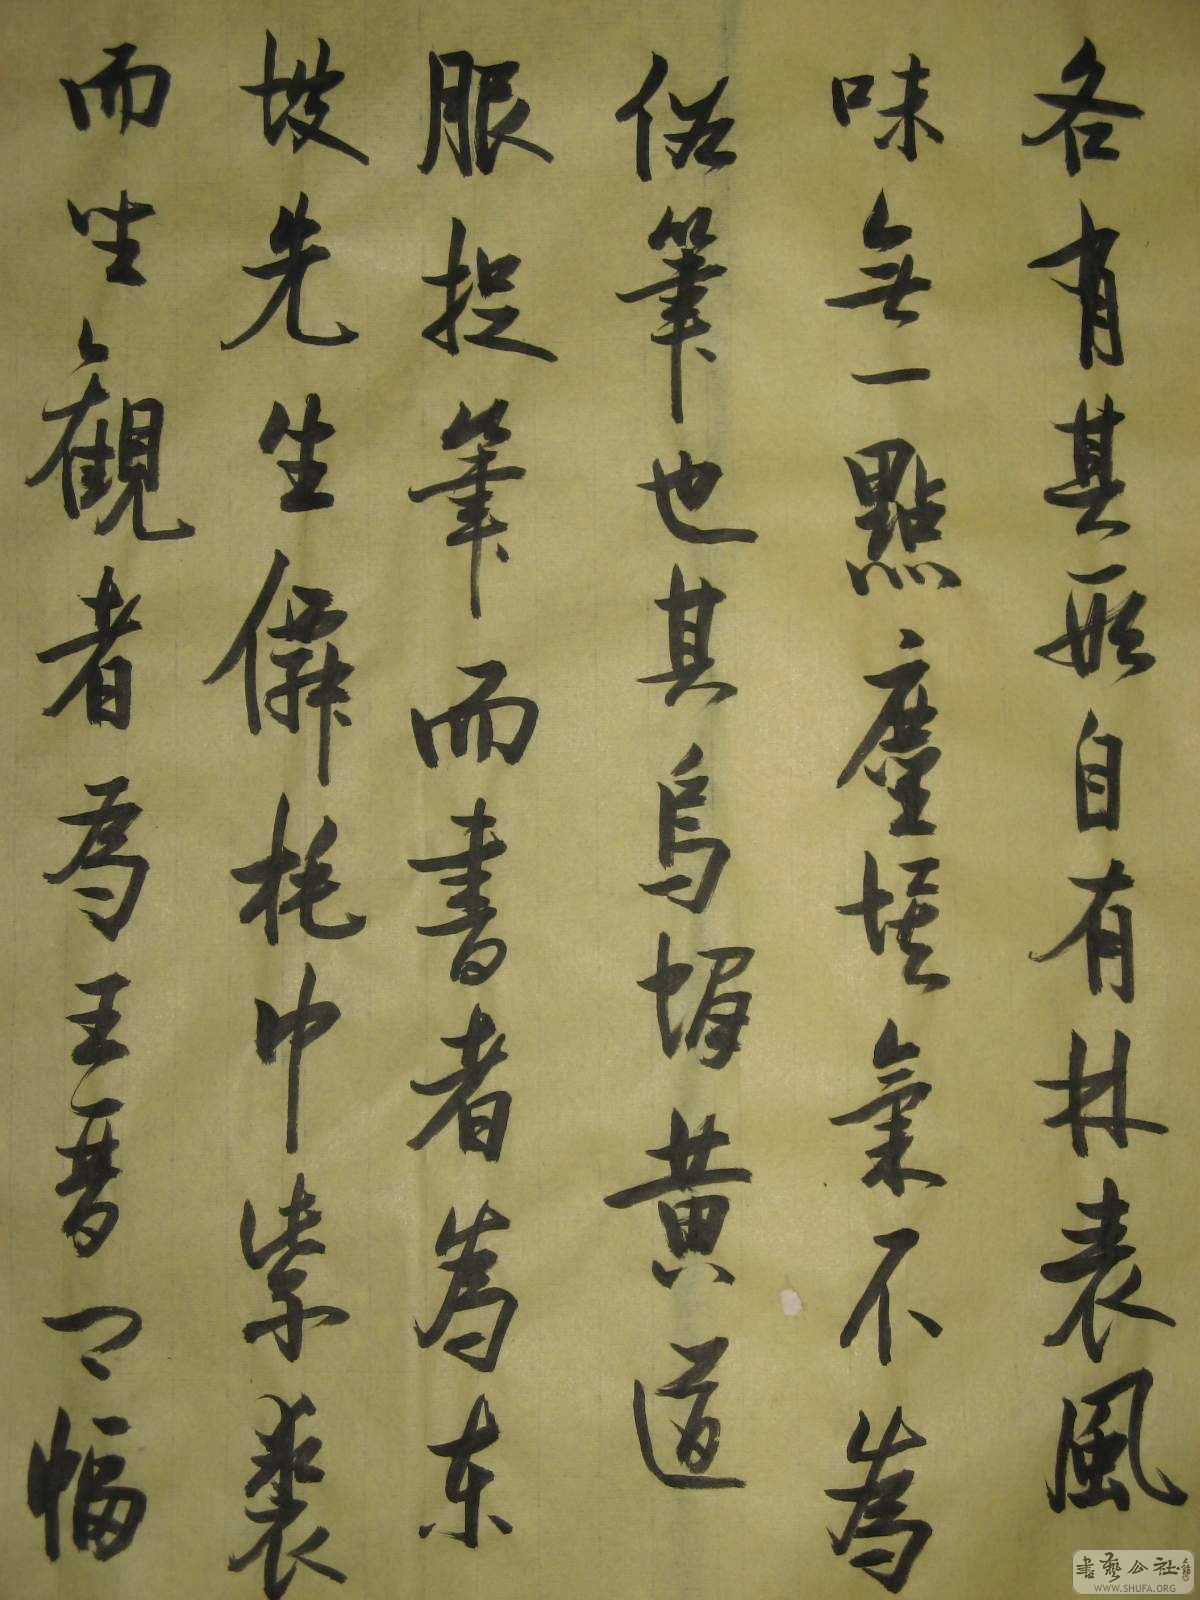 各有其形自有林表風
味無一點塵埃氣不為
俗筆也其烏帽黃道
服捉筆而書者為东
坡先生僊桃巾紫裘
而坐觀者為王晉卿幅
書藝公社
WWW.SHUFA.ORG